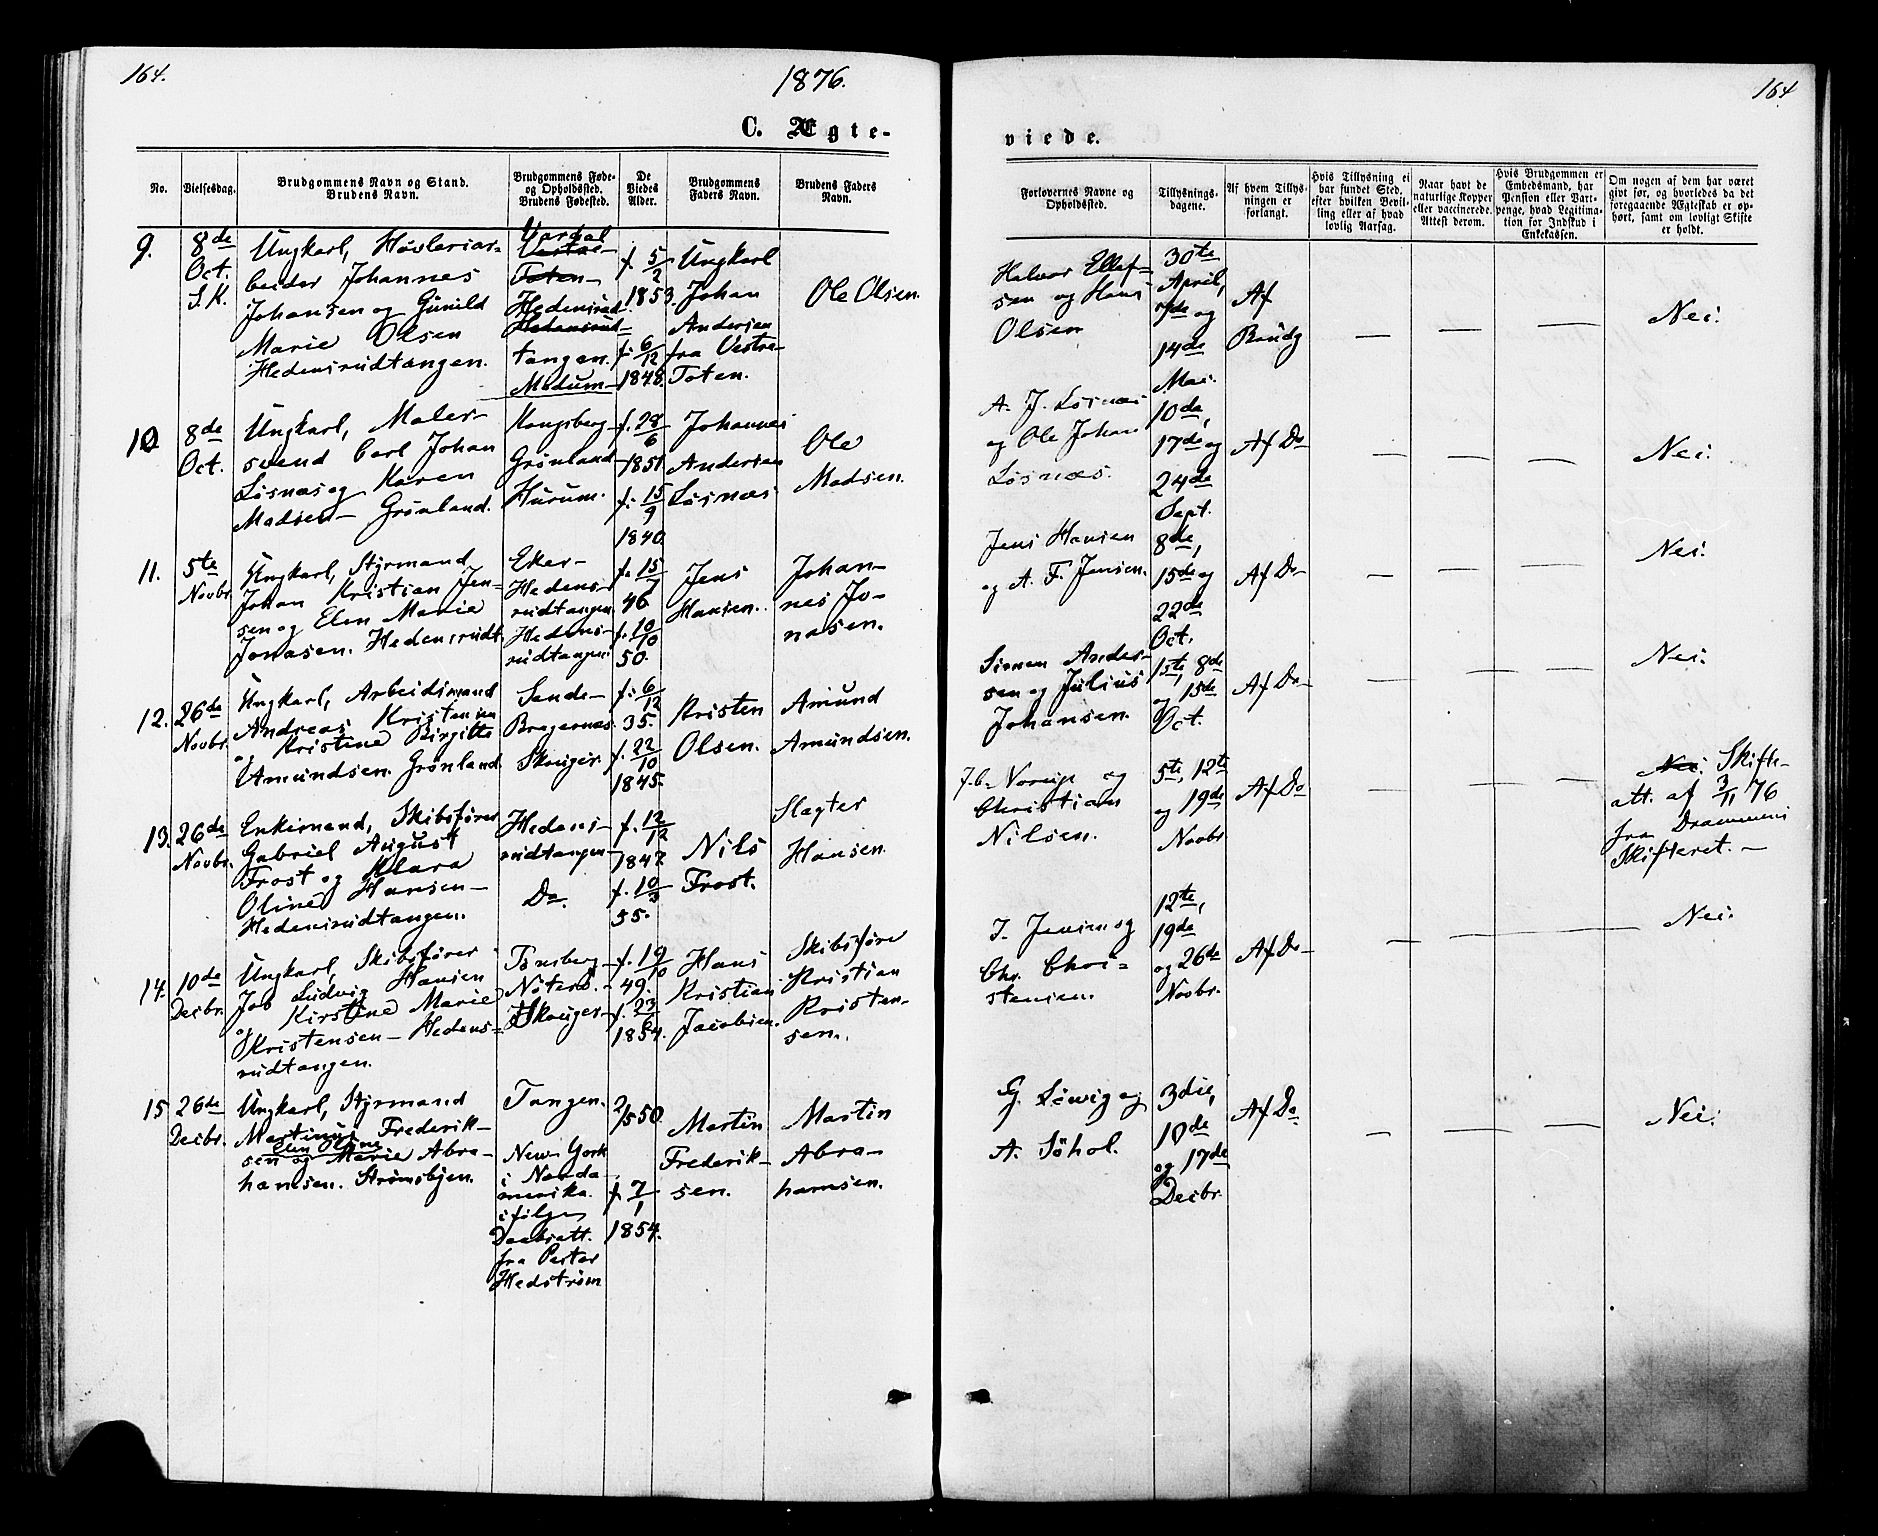 164.
1876.
C. Ægte-
No.
Vielsesdag.
Brudgommens Navn og Stand.
Brudens Navn.
Brudgommens Føde-
og Opholdssted.
Brudens Fødested.
De
Viedes
Alder.
Brudgommens
Faders Navn.
Brudens Faders
Navn.
9.
8de
Oct.
S.K.
Ungkarl, Høvleriar-
beider Johannes
Johansen og Gunild
Marie Olsen
Hedensrudtangen.
Vardal
Vestre
Toten
Hedensrud
Hedensrud-
tangen.
Modum-
f. 5/2
1853.
f. 6/12
1848.
Ungkarl
Johan
Andersen
fra Vestre-
Toten.
Ole Olsen.
10
8de
Oct.
Ungkarl, Maler-
svend Carl Johan
Løsnæs og Karen
Madsen- Grønland.
Kongsberg-
Grønland-
Hurum.
f. 28/6
1851
f. 15/9
1840.
Johannes
Andersen
Løsnæs
Ole
Madsen.
11.
5te
Novbr.
Ungkarl, Styrmand
Johan Kristian Jen-
sen og Elen Marie
Jonasen. Hedensrudt.
Eker-
Hedens-
rudtangen
Hedens-
rudtangen
f. 15/7
46
f. 10/10
50.
Jens
Hansen.
Johan-
nes Jo-
nasen.
12.
26de
Novbr.
Ungkarl, Arbeidsmand
Andreas Kristensen
og Kristine Birgitte
Amundsen. Grønland.
Sande-
Bragernæs.
Skouger.
f. 6/12
35.
f. 22/10
1845.
Kristen
Olsen.
Amund
Amundsen.
13.
26de
Novbr.
Enkemand, Skibsfører
Gabriel August
Frost og Klara
Oline Hansen-
Hedensrudtangen.
Hedens-
rudtangen-
Do.
f. 12/12
1847
f. 10/3
55.
Nils
Frost.
Slagter
Hansen.
14.
10de
Decbr.
Ungkarl, Skibsfører
Job Ludvig Hansen
og Kirstine Marie
Kristensen- Hedens-
rudtangen.
Tønsberg-
Nøterø.-
Skouger-
f. 19/10
49.
f. 23/6
1854.
Hans
Kristian
Jacobsen.
Skibsføre
Kristian
Kristen-
sen.
15
26de
Decbr.
Ungkarl, Styrmand
Martinus Frederik-
Elen Oline
sen og Marie Abra-
hamsen. Strømsbyen.
Tangen.
New-York
i Norda-
merika.
ifølge
Daabsatt.
fra Pastor
Hedstrøm
2/5 50.
f. 7/1
1854.
Martin
Frederik-
sen.
Martin
Abra-
hamsen.
164
viede.
Forlovernes Navne og
Opholdssted.
Tillysnings-
dagene.
Af hvem Tillys-
ningen er
forlangt.
Hvis Tillysning ei
har fundet Sted,
efter hvilken Bevil-
ling eller af hvad
lovlig Aarsag.
Naar havt de
naturlige Kopper
eller vaccinerede.
Attest derom.
Hvis Brudgommen er
Embedsmand, har
Pension eller Vart-
penge, hvad Legitima-
tion for Indskud i
Enkekassen.
Om nogen af dem har været
givt før, og hvorledes da det
foregaaende Ægteskab er op-
hørt, samt om lovligt Skifte
er holdt.
Halvor Ellef-
sen og Hans
Olsen
30te
April,
7de og
14de
Mai.
Af
Brudg
Nei.
A. J. Løsnæs
og Ole Johan
Løsnæs.
10de,
17de og
24de
Sept.
Af Do
Nei.
Jens Hansen
og A. F. Jensen.
8de,
15de og
22de
Oct.
Af Do-
Nei.
Simen Ander-
sen og Julius
Johansen.
1ste, 8de
og 15de
Oct.
Af Do-
Nei.
og
Christian
Nilsen.
5te, 12te
og 19de
Novbr.
Af Do
Nei. Skifte-
att. af 3/11 76
fra Drammens
Skifteret.-
J. Jensen og
Chr. Chri-
stensen.
12te,
19de
og 26de
Novbr.
Af Do-
Nei.
G. Løwig og
A. Söhol.
3die,
10de
og 17de
Decbr.
Af Do
Nei.